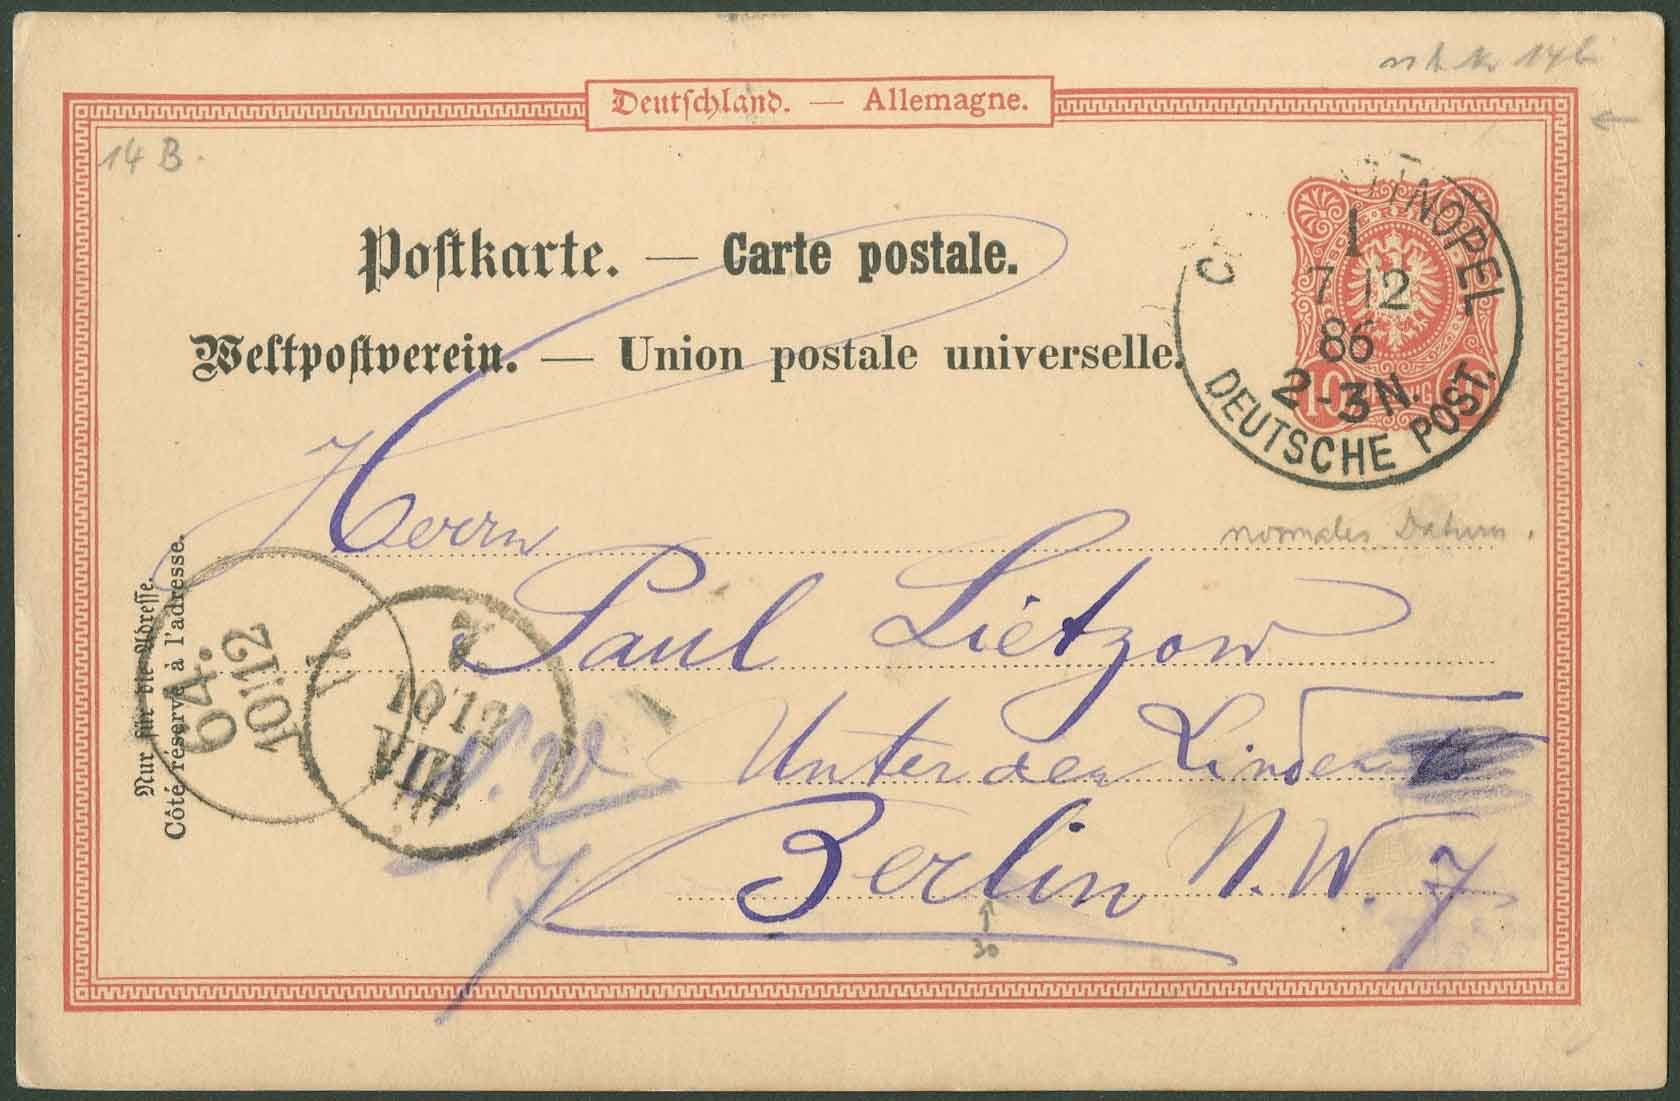 Deutschland. — Allemagne.
14 B.
Postkarte. — Carte postale.
Weltpostverein. — Union postale universelle.
TINOPEL
1
7 12
86
2-3N.
DEUTSCHE POST.
10
normales Datum.
Herrn
Paul Lietzow
Unter den Linden
Berlin N.W. 7
N.W
7
30
Nur für die Adresse.
Côté réservé à l'adresse.
64.
10.12
10 12
VIII